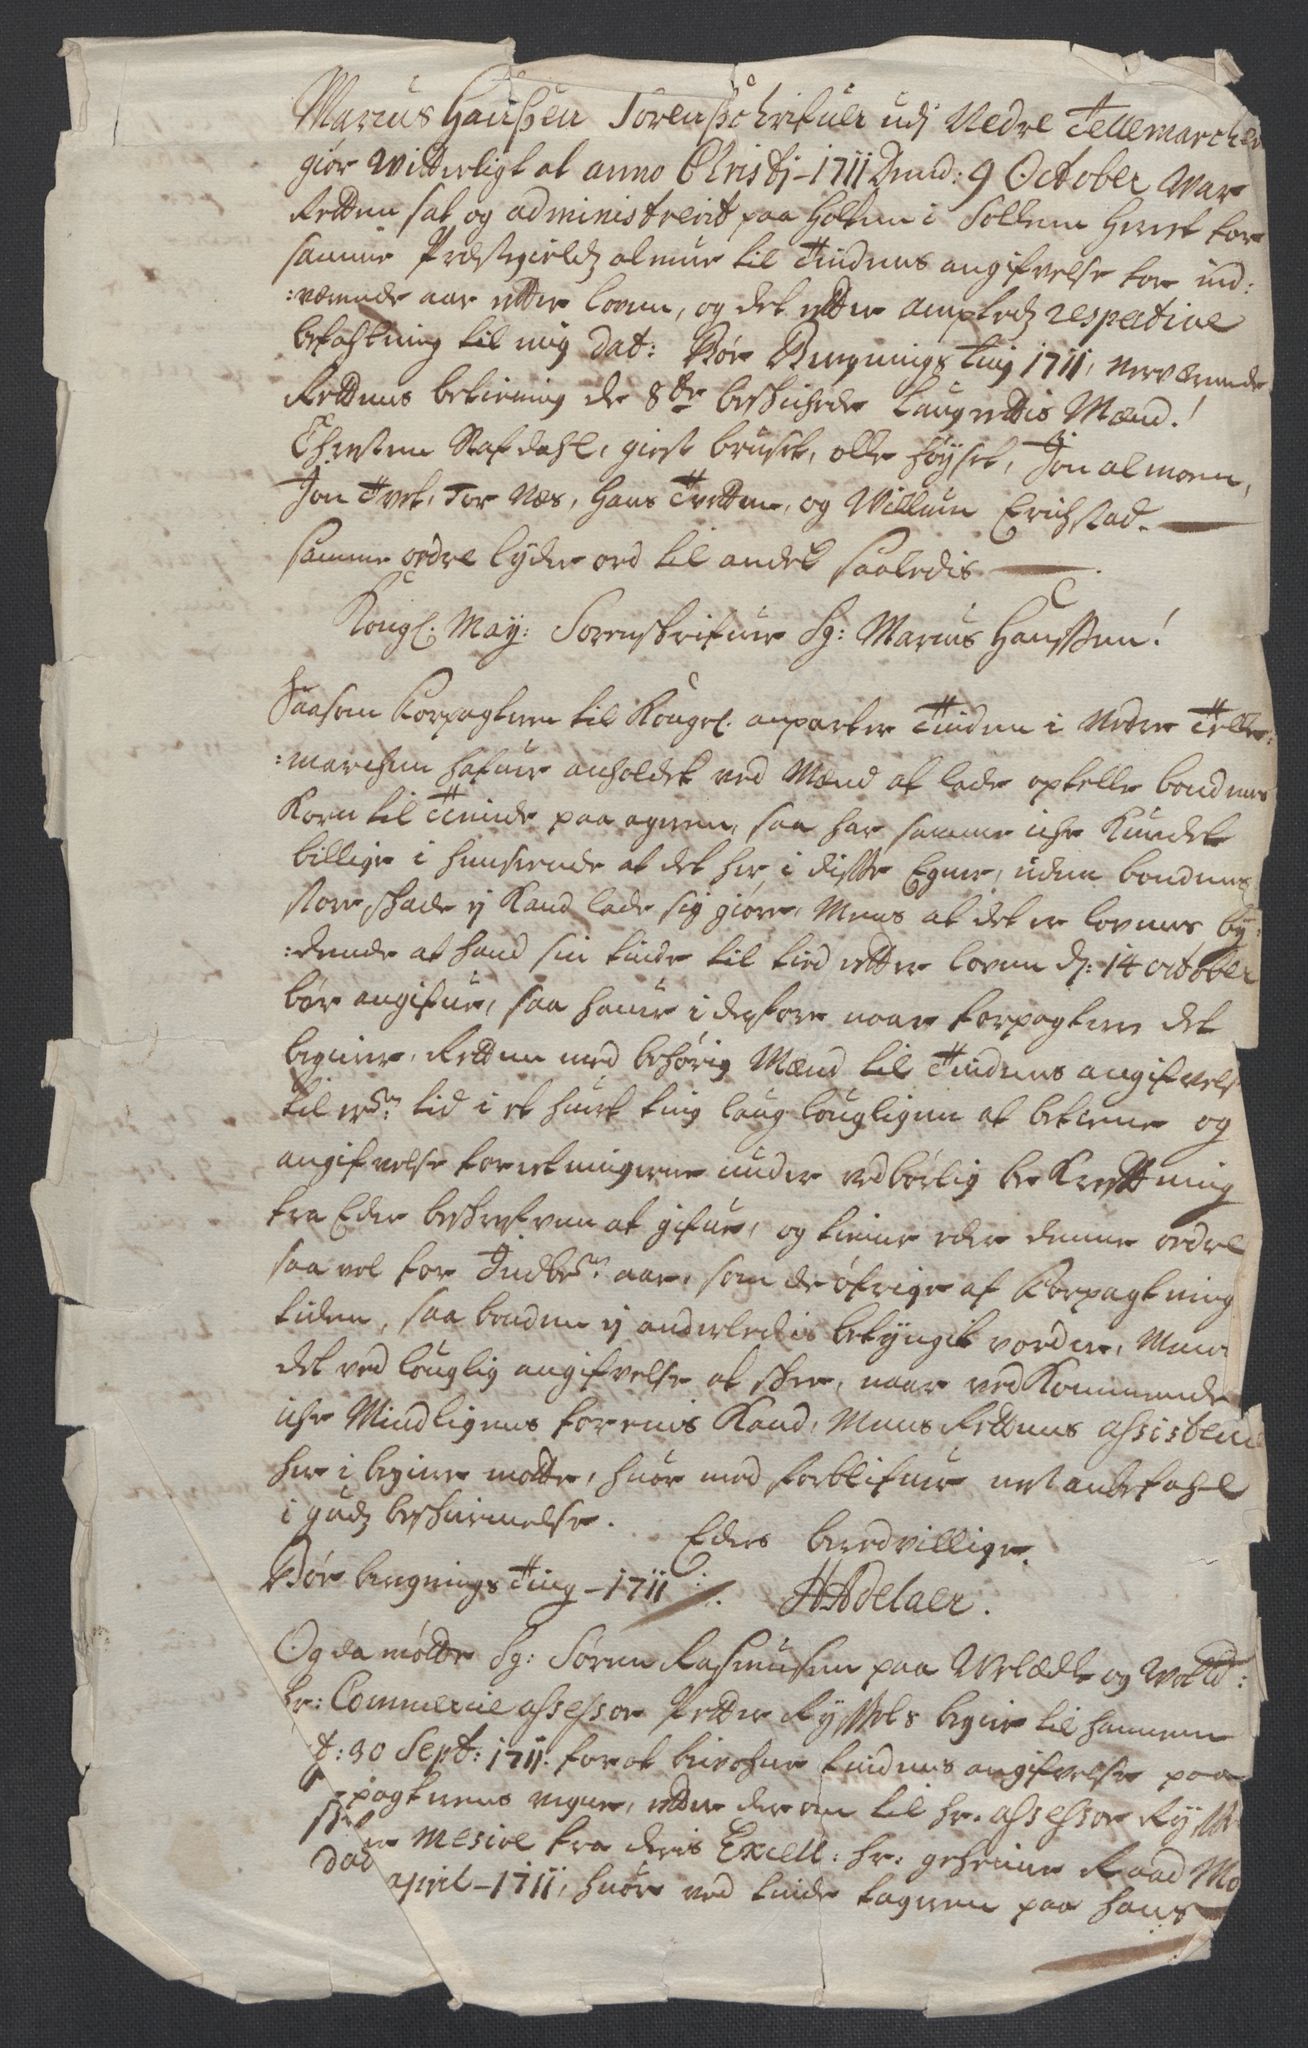 Marius Hanssen Sorenschrifuer udj Nedre Tellemarchen
giør Witterligt at anno Christj - 1711 Dend: 9 October War
Retten sat og administrerit paa Holten i Sollem Heret for
samme Præstegieldz almue til Tiidens angifvelse for ind:
:værende aar efter loven, og det efter amptedz respective
befahlning til mig dat: Bør Bøygnings Ting 1711, nerværende
Rettens betiening de 8te beschichede Laugrettis Mænd!
Christen Rafdahl, giest bruset, olle Høyset, Jon almoen,
Jon Tvet, Tor Næs, Hans Tvetten, og Willum Erichstad.
samme ordre lyder ord til andet saaledis
Kongl. May: Sorenskrifuer Sg: Marius Hanssen!
Saasom Forpagteren til Kongel. anparter Tiiden i Nedre Telle:
:marchen hafuer anholdet ved Mænd at lade optelle bondens
Korn til Tiende paa ageren, saa har samme iche Kundet
billiges i henseende at det her i disse Egne, uden bondens
store schade ej Kand lade sig giøre, Mens at det er lovens by:
:dende at hand sin tiende til tied efter loven d: 14 october
bør angifue, saa hauer i derfore naar forpagteren det
begierer, Retten med behørig Mænd til Tiidens angifvelse
til ers: tid i et huert ting laug lougligen at betiene og
angifvelse forretningerne under vedbørlig bekreftning
fra Eder beschrefven at gifue, og tiener eder denne ordre
saa vel for Indev: aar, som de øfrige af Forpagtning
tiden, saa bonden ej anderledis betynget vorder, Men
det ved louglig angifvelse at schee, naar vedKommende
iche Mindligens forenis Kand, Mens Rettens assistence
her i begierer motte, huor med forblifuer nest anbefahl
i gudz beschiermelse. Eders beredvillige
Bør bøygnings Ting - 1711 ./. HAdelaer.
Og da møtte Sg: Søren Rasmussen paa Velædle og Welb:
hr: Commercie assessor Petter Ryssels begier til hannem
d: 30 Sept: 1711. for at biwohne tiendens angifvelse paa
pagterens vegne, efter der om til hr. assessor Ryssel
mesive fra deris Excell: hr: geheime Raad
april - 1711, huor ved tiende tageren paa hans